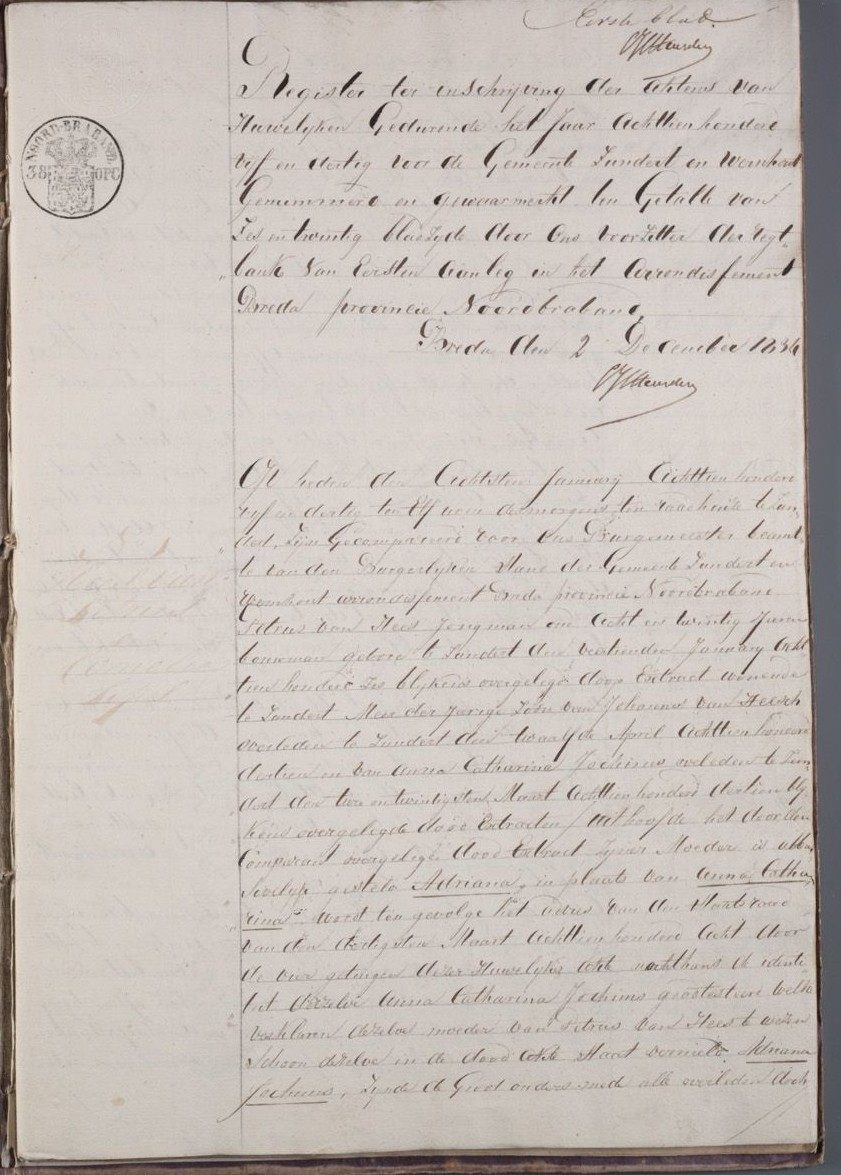 Eerste blad.
NOORD-BRABAND.
38 OPC
Register ter inschrijving der Aktens van
Huwelijken Gedurende het Jaar Achttien honderd
vijf en dertig voor de Gemeente Zundert en Wernhout
Genummerd en gewaarmerkt ten Getalle van
Zes en twintig bladzijde door Ons Voorzitter der regt-
bank Van Eersten Aanleg in het Arrondissement
Breda provincie Noordbraband,
Breda den 2 December 1834
Op heden den Achtsten Januarij Achttien honderd
vijf en dertig ten Elf uren des morgens ten raadhuize te Zun
dert, Zijn Gecompareerd voor Ons Burgemeester beamb-
te van den Burgerlijken Stand der Gemeente Zundert en
Wernhout arrondissement Breda provincie Noordbraband
Petrus Van Hees Jongman oud Acht en twintig Jaren
bouwman geboren te Zundert den veertienden January Acht
tien honderd Zes blijkens overgelegd doop Extract wonende
te Zundert Meerderjarige Zoon van Johannes van Heesch
overleden te Zundert den twaalfde April Achttien honderd
dertien en van Anna Catharina Jochims overleden te Zun
dert den twee en twintigsten Maart Achttien honderd dertien bly
kens overgelegde dood Extracten / uit hoofde het door den
Comparant overgelegd dood Extract Zyner Moeder is
gesteld Adriana, in plaats van Anna Catha
rina word ten gevolge het advies van den Staatsraad
van den dertigsten Maart Achttien honderd Acht door
de vier getuigen dezer Huwelijks Akte de identi-
teit derzelve Anna Catharina Jochims welke
verklaren dezelve moeder van Petrus van Hees te wezen
Schoon dezelve in de dood Akte Staat vermeld Adriana
Jochims, Zynde de Groot ouders mede alle overleden doch